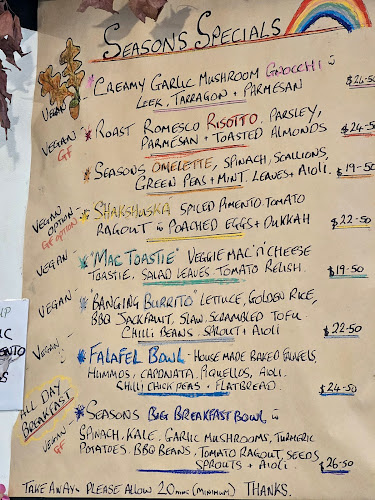 SEASONS SPECIALS
VEGAN - * CREAMY GARLIC MUSHROOM GNOCCHI
LEEK, TARRAGON + PARMESAN $24-50
VEGAN GF - * ROAST ROMESCO RISOTTO. PARSLEY,
PARMESAN + TOASTED ALMONDS $24-50
* SEASONS OMELETTE, SPINACH, SCALLIONS,
GREEN PEAS + MINT. LEAVES + AIOLI. $19-50
VEGAN OPTION GF OPTION - * "SHAKSHUSKA" SPICED PIMENTO. TOMATO
RAGOUT POACHED EGGS + DUKKAH $22-50
VEGAN - * "MAC TOASTIE" VEGGIE MAC'N'CHEESE
TOASTIE. SALAD LEAVES. TOMATO RELISH. $19-50
VEGAN - * "BANGING BURRITO" LETTUCE, GOLDEN RICE,
BBQ JACKFRUIT, SLAW. SCRAMBLED TOFU.
CHILLI BEANS. SPROUT + AIOLI $22-50
VEGAN - * FALAFEL BOWL - HOUSE MADE BAKED FALAFELS,
HUMMOS, CAPONATA. PIQUELLOS, AIOLI.
CHILLI CHICK PEAS + FLATBREAD. $24-50
ALL DAY BREAKFAST
VEGAN GF - * SEASONS BIG BREAKFAST BOWL
SPINACH, KALE. GARLIC MUSHROOMS, TURMERIC
POTATOES. BBQ BEANS, TOMATO RAGOUT, SEEDS
SPROUTS + AIOLI. $26-50
TAKE AWAY - PLEASE ALLOW 20 MINS (MINIMUM) THANKS.